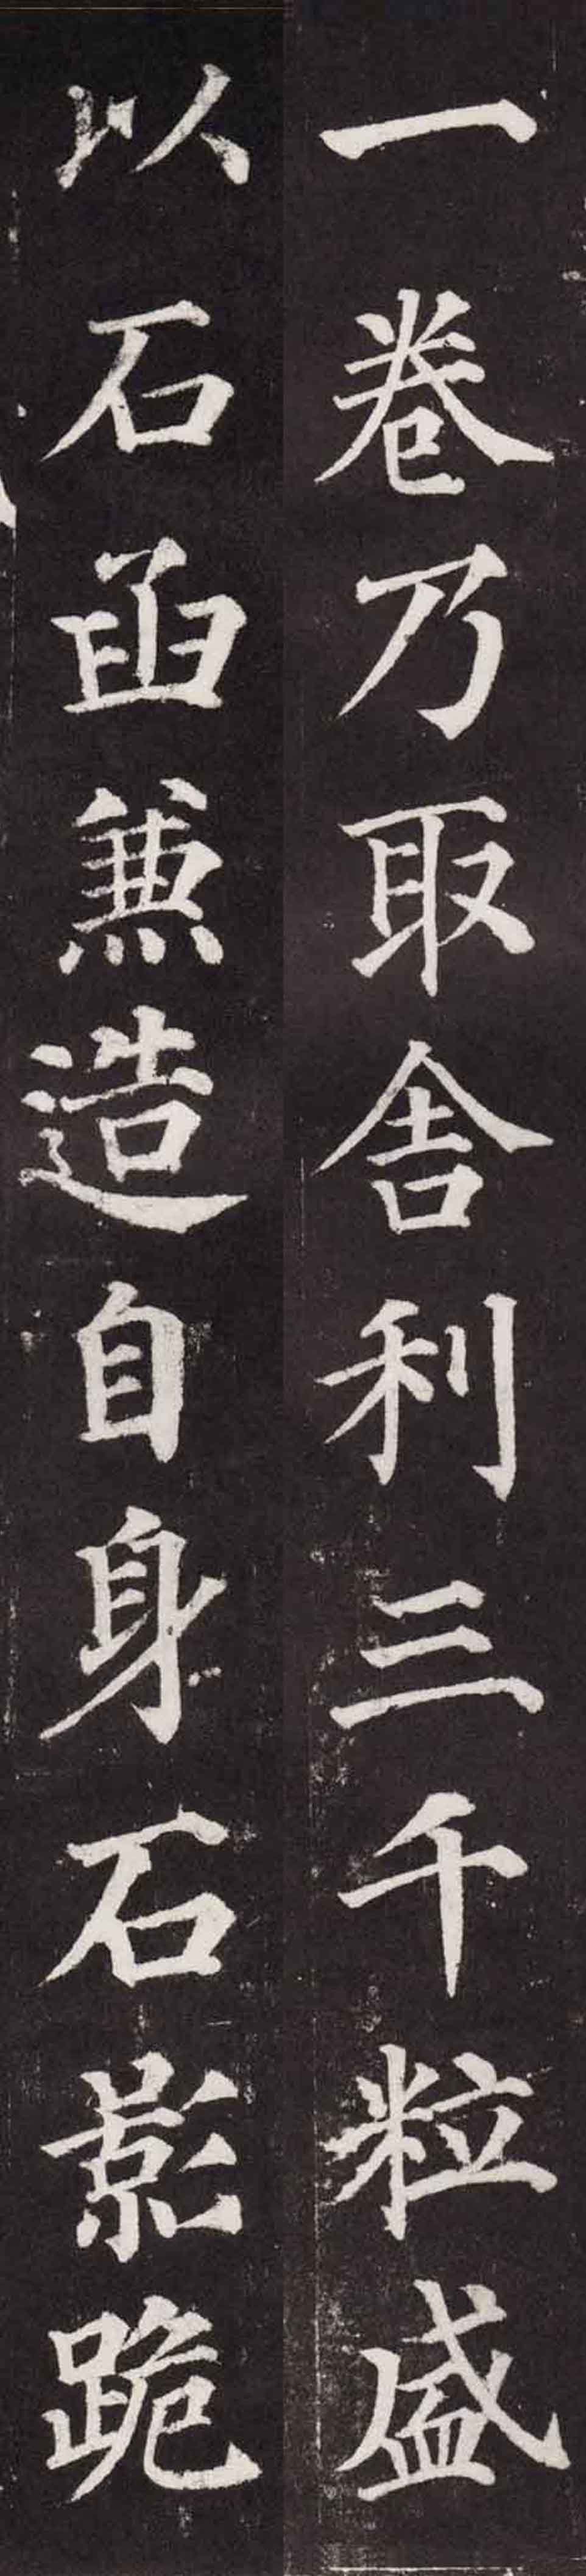 一卷乃取舍利三千粒盛
以石函兼造自身石影跪